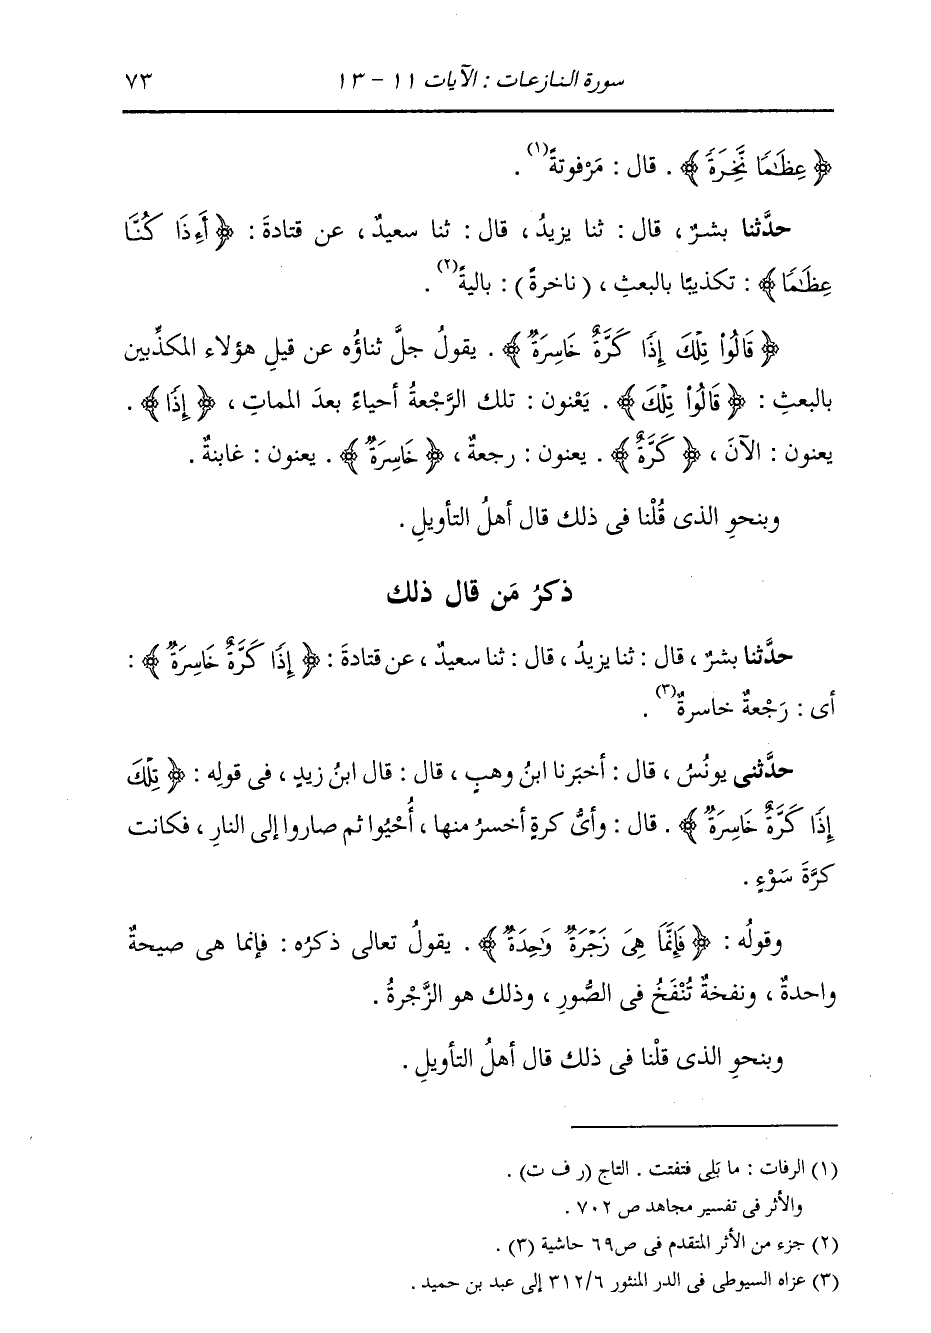 سورة النازعات : الآيات ١١ - ١٣ ٧٣
﴿ عِظَٰمًا نَّخِرَةً ﴾ . قال : مَرْفوتةً(١) .
حدَّثنا بشرٌ ، قال : ثنا يزيدُ ، قال : ثنا سعيدٌ ، عن قتادةَ : ﴿ أَءِذَا كُنَّا
عِظَٰمًا ﴾ : تكذيبًا بالبعثِ ، ( ناخرةً ) : باليةً(٢) .
﴿ قَالُوا۟ تِلْكَ إِذًا كَرَّةٌ خَاسِرَةٌ ﴾ . يقولُ جلَّ ثناؤُه عن قيلِ هؤلاء المكذِّبين
بالبعثِ : ﴿ قَالُوا۟ تِلْكَ ﴾ . يَعْنون : تلك الرَّجْعةُ أحياءً بعدَ المماتِ ، ﴿ إِذًا ﴾ .
يعنون : الآنَ ، ﴿ كَرَّةٌ ﴾ . يعنون : رجعةٌ ، ﴿ خَاسِرَةٌ ﴾ . يعنون : غابنةٌ .
وبنحوِ الذى قُلْنا فى ذلك قال أهلُ التأويلِ .
ذكرُ مَن قال ذلك
حدَّثنا بشرٌ ، قال : ثنا يزيدُ ، قال : ثنا سعيدٌ ، عن قتادةَ : ﴿ إِذًا كَرَّةٌ خَاسِرَةٌ ﴾ :
أى : رَجْعةٌ خاسرةٌ(٣) .
حدَّثنى يونُسُ ، قال : أخبَرنا ابنُ وهبٍ ، قال : قال ابنُ زيدٍ ، فى قولِه : ﴿ تِلْكَ
إِذًا كَرَّةٌ خَاسِرَةٌ ﴾ . قال : وأىُّ كرةٍ أخسرُ منها ، أُحْيُوا ثم صاروا إلى النارِ ، فكانت
كرَّةَ سَوْءٍ .
وقولُه : ﴿ فَإِنَّمَا هِىَ زَجْرَةٌ وَٰحِدَةٌ ﴾ . يقولُ تعالى ذكرُه : فإنما هى صيحةٌ
واحدةٌ ، ونفخةٌ تُنْفَخُ فى الصُّورِ ، وذلك هو الزَّجْرةُ .
وبنحوِ الذى قلْنا فى ذلك قال أهلُ التأويلِ .
(١) الرفات : ما بَلِى فتفتت . التاج (ر ف ت) .
والأثر فى تفسير مجاهد ص ٧٠٢ .
(٢) جزء من الأثر المتقدم فى ص٦٩ حاشية (٣) .
(٣) عزاه السيوطى فى الدر المنثور ٣١٢/٦ إلى عبد بن حميد .